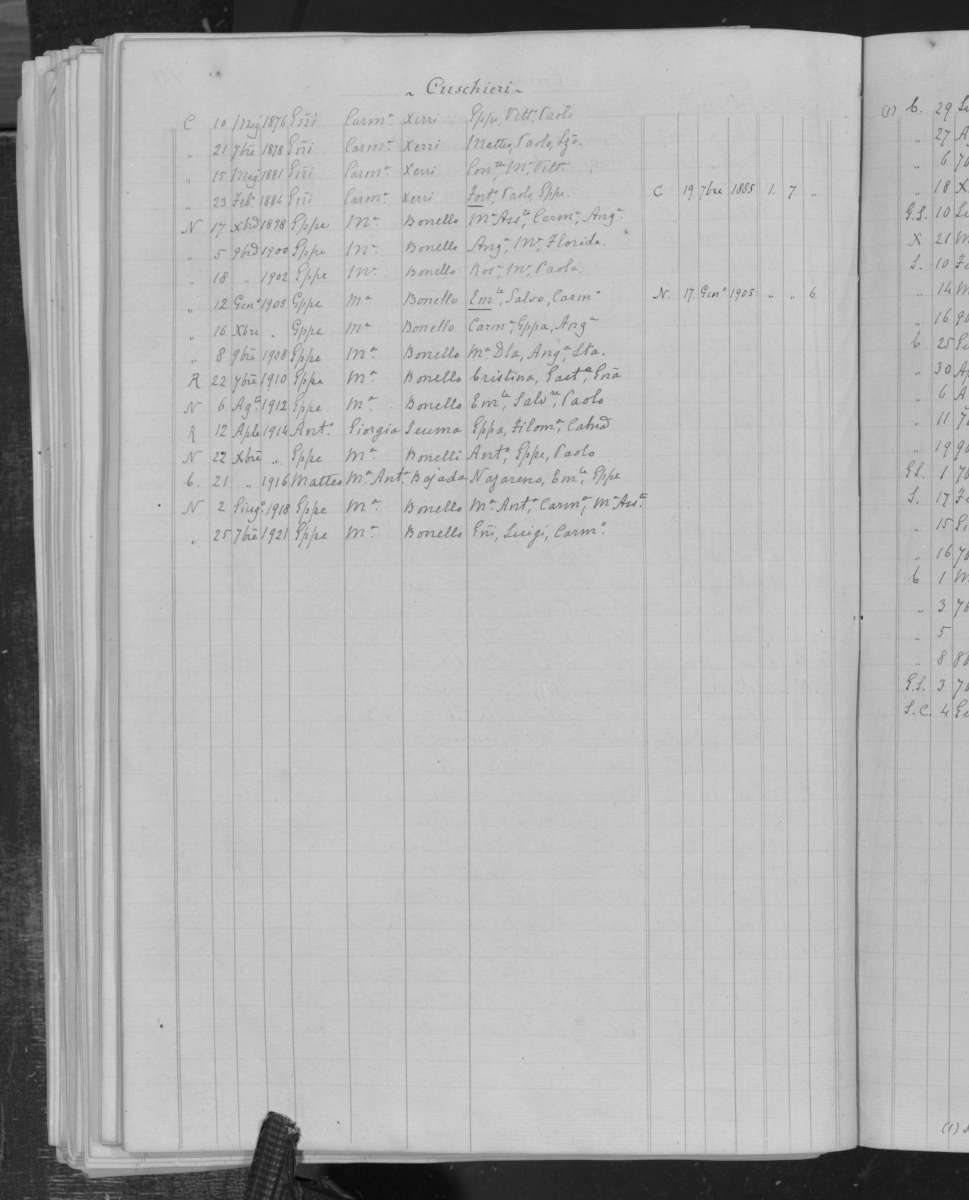 ~ Cuschieri ~
C 10 Mag 1876 Gñi Carmª Xerri Gppe, Vittº, Paolo
„ 21 7bre 1878 Gñi Carmª Xerri Matteo, Paolo,
„ 15 Mag 1881 Gñi Carmª Xerri Mª, Vittª
„ 23 Febº 1884 Gñi Carmª Xerri Fortª, Paolo, Gppe. C 19 7bre 1885 1. 7 „
N 17 Xbre 1898 Gppe Mª Bonello Mª Assᵗᵃ, Carmª, Angª
„ 5 9bre 1900 Gppe Mª Bonello Angª, Mª, Florida.
„ 18 „ 1902 Gppe Mª Bonello Rosª, Mª, Paola
„ 12 Genº 1905 Gppe Mª Bonello Emˡᵉ, Salvo, Carmº N. 17 Genº 1905 „ „ 6
„ 16 Xbre „ Gppe Mª Bonello Carmª, Gppa, Angª
„ 8 9bre 1908 Gppe Mª Bonello Mª Dla, Angª, Sta.
R 22 7bre 1910 Gppe Mª Bonello Cristina, Gaetª, Gnã
N 6 Agº 1912 Gppe Mª Bonello Emˡᵉ, Salvʳᵉ, Paolo
R 12 Aple 1914 Antº Giorgia Seuma Gppa, Filomª, Catnã
N 22 Xbre „ Gppe Mª Bonelli Antº, Gppe, Paolo
C. 21 „ 1916 Matteo Mª Antª Bajada Nazareno, Emˡᵉ, Gppe
N 2 Giugº 1918 Gppe Mª Bonello Mª Antª, Carmª, Mª Assᵗᵃ
„ 25 7bre 1921 Gppe Mª Bonello Gñi, Luigi, Carmº
(1) C. 29
„ 27
„ 6
„ 18 X
G.S. 10
X 21 M
S. 10
„ 14 M
„ 16
C 25
„ 30 Ap
„ 6 A
„ 11
„ 19
G.S. 1
S. 17
„ 15
„ 16
C 1 M
„ 3
„ 5
„ 8
G.S. 3
S.C. 4
(1)